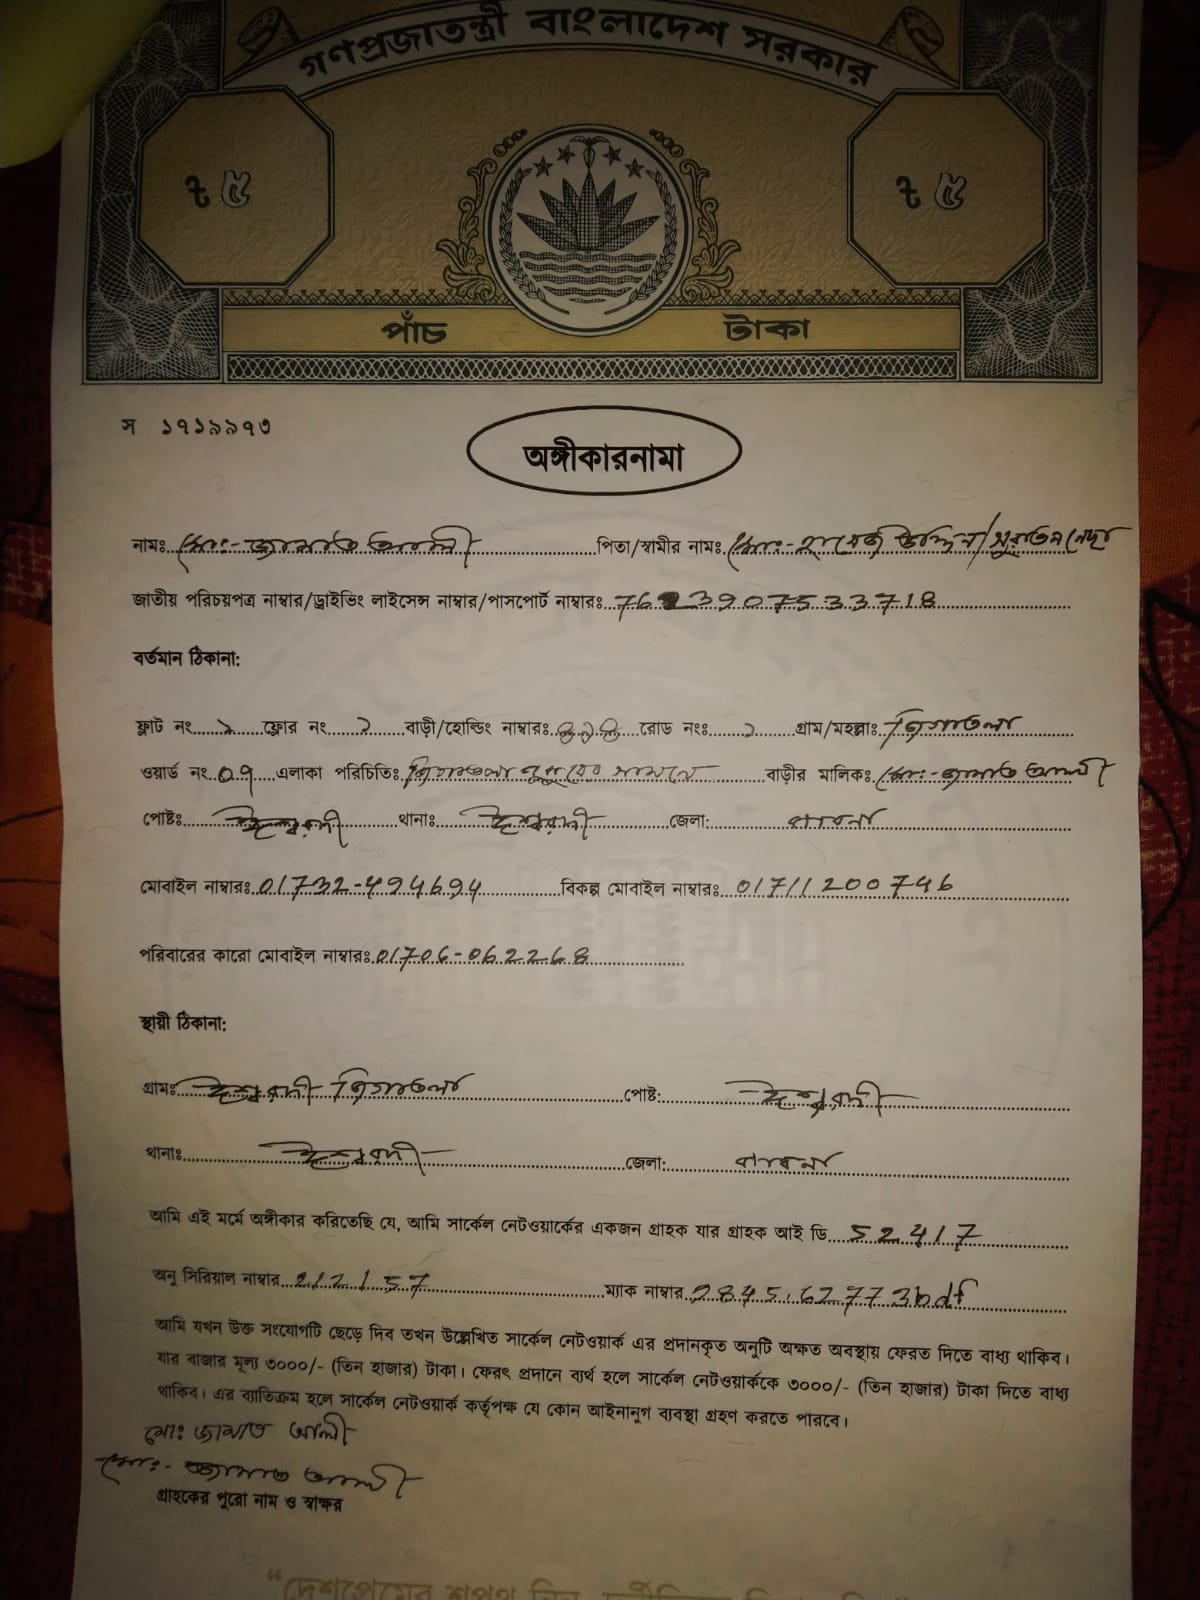 গণপ্রজাতন্ত্রী বাংলাদেশ সরকার
৳ ৫ ৳ ৫
পাঁচ টাকা
স ১৭১৯৯৭৩
অঙ্গীকারনামা
নামঃ মোঃ- জামাত আলী পিতা/স্বামীর নামঃ মোঃ-
জাতীয় পরিচয়পত্র নাম্বার/ড্রাইভিং লাইসেন্স নাম্বার/পাসপোর্ট নাম্বারঃ
বর্তমান ঠিকানা:
ফ্লাট নং ফ্লোর নং ২ বাড়ী/হোল্ডিং নাম্বারঃ রোড নংঃ গ্রাম/মহল্লাঃ
ওয়ার্ড নং 09 এলাকা পরিচিতিঃ সামনে বাড়ীর মালিকঃ মোঃ- জামাত আলী
পোষ্টঃ ঈশ্বরদী থানাঃ ঈশ্বরদী জেলা: পাবনা
মোবাইল নাম্বারঃ 01732-494694 বিকল্প মোবাইল নাম্বারঃ 01711200746
পরিবারের কারো মোবাইল নাম্বারঃ 01706-062268
স্থায়ী ঠিকানা:
গ্রামঃ ঈশ্বরদী পোষ্ট: ঈশ্বরদী
থানাঃ ঈশ্বরদী জেলা: পাবনা
আমি এই মর্মে অঙ্গীকার করিতেছি যে, আমি সার্কেল নেটওয়ার্কের একজন গ্রাহক যার গ্রাহক আই ডি 52417
অনু সিরিয়াল নাম্বার 212157 ম্যাক নাম্বার 2845.62773bdf
আমি যখন উক্ত সংযোগটি ছেড়ে দিব তখন উল্লেখিত সার্কেল নেটওয়ার্ক এর প্রদানকৃত অনুটি অক্ষত অবস্থায় ফেরত দিতে বাধ্য থাকিব।
যার বাজার মূল্য ৩০০০/- (তিন হাজার) টাকা। ফেরৎ প্রদানে ব্যর্থ হলে সার্কেল নেটওয়ার্ককে ৩০০০/- (তিন হাজার) টাকা দিতে বাধ্য
থাকিব। এর ব্যতিক্রম হলে সার্কেল নেটওয়ার্ক কর্তৃপক্ষ যে কোন আইনানুগ ব্যবস্থা গ্রহণ করতে পারবে।
মোঃ জামাত আলী
মোঃ- জামাত আলী
গ্রাহকের পুরো নাম ও স্বাক্ষর